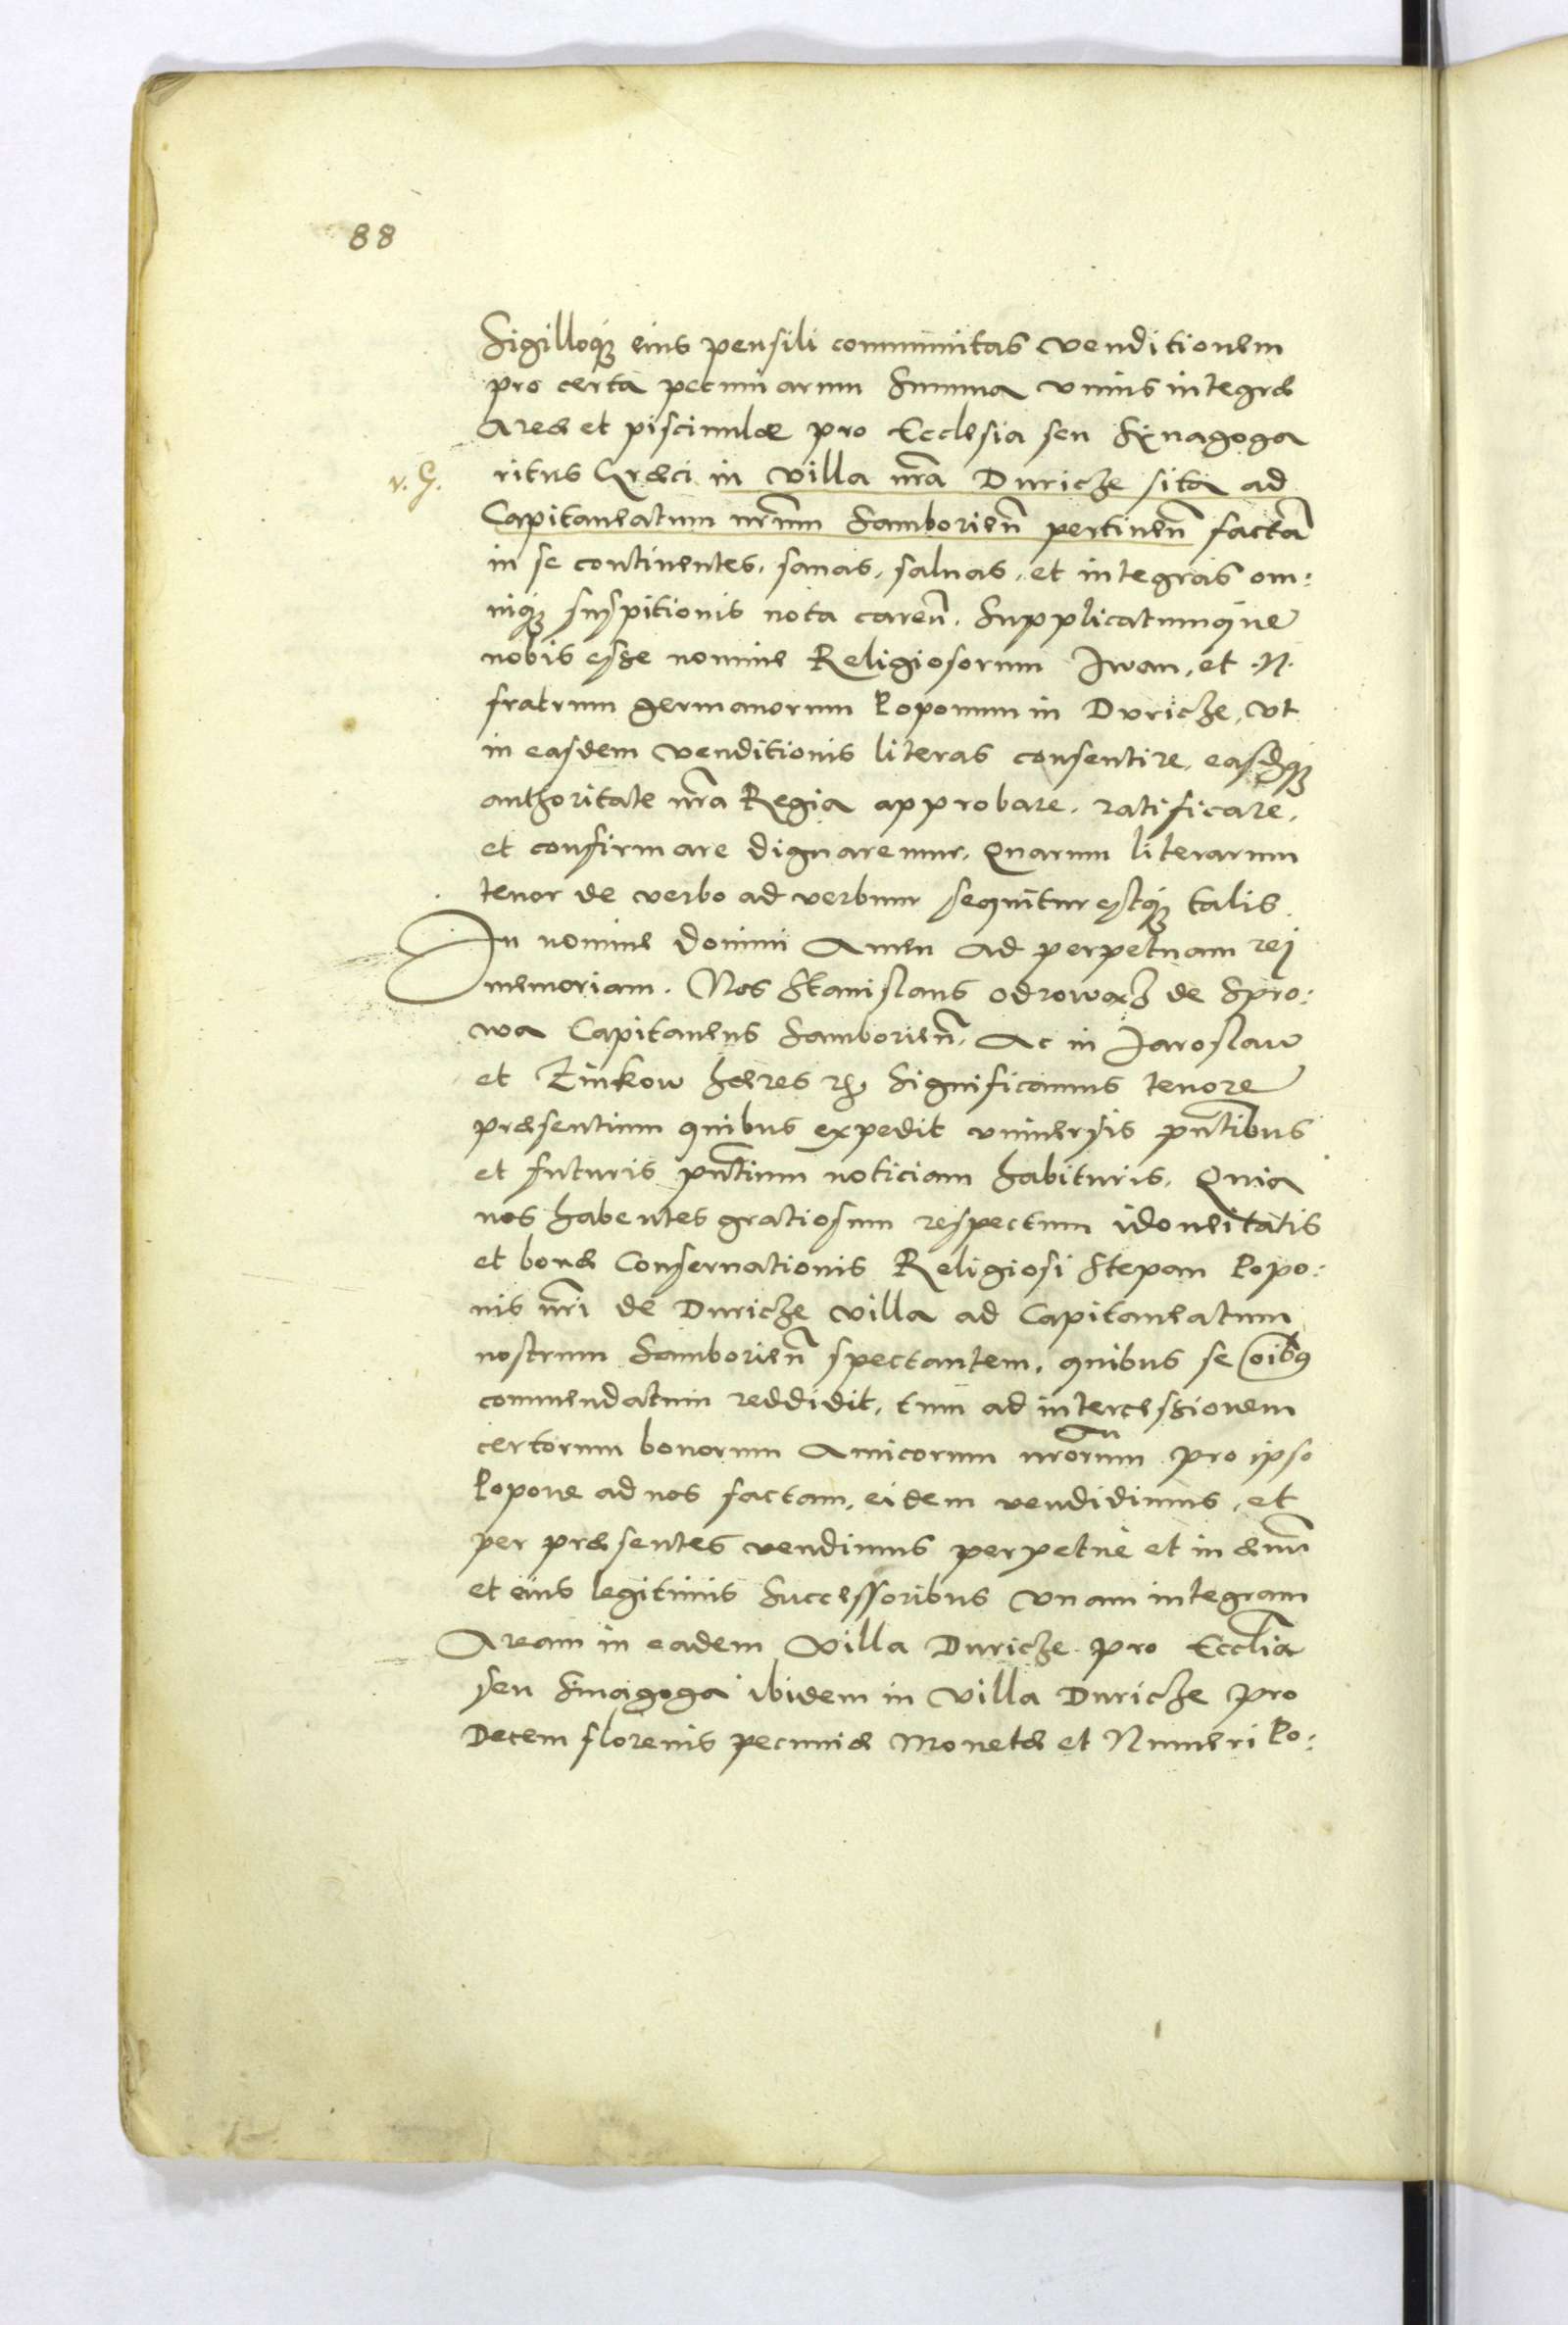 88
Sigilloq̃ eius pensili communitas venditionem
pro certa pecuniarum Summa vnius integræ
Areæ et piscinulæ pro Ecclesia seu Synagoga
v. G.
ritus Græci in villa nr̃a Duricze sita ad
Capitaneatum nr̃um Samborien̄ pertinen̄ factā
in se continentes, sanas, saluas, et integras om:
niq̃ suspitionis nota caren̄. Supplicatumque
nobis esse nomine Religiosorum Iwan, et .N.
fratrum germanorum Poponum in Duricze, vt
in easdem venditionis literas consentire, easdq̃
authoritate nr̃a Regia approbare, ratificare,
et confirmare dignaremur. Quarum literarum
tenor de verbo ad verbum sequitur estq̃ talis.
In nomine domini Amen ad perpetuam rej
memoriam. Nos Stanislaus odrowaz de Spro:
wa Capitaneus Samborien̄, Ac in Jaroslaw
et Zinkow hæres &c, Significamus tenore
præsentium quibus expedit vniuersis pn̄tibus
et futuris pn̄tium noticiam habituris. Quia
nos habentes gratiosum respectum idoneitatis
et bonæ Conseruationis Religiosi Stepan Popo:
nis nr̃i de Duricze villa ad Capitaneatum
nostrum Samborien̄ spectantem, quibus se oĩbus
commendatum reddidit, tum ad intercessionem
certorum bonorum Amicorum nr̃orum pro ipso
Popone ad nos factam, eidem vendidimus, et
per præsentes vendimus perpetuè et in æuū
et eius legitimis Successoribus vnam integram
Aream in eadem Villa Duricze pro Eccl̃ia
seu Sinagoga ibidem in villa Duricze pro
Decem florenis pecuniæ Monetæ et Numeri Po: